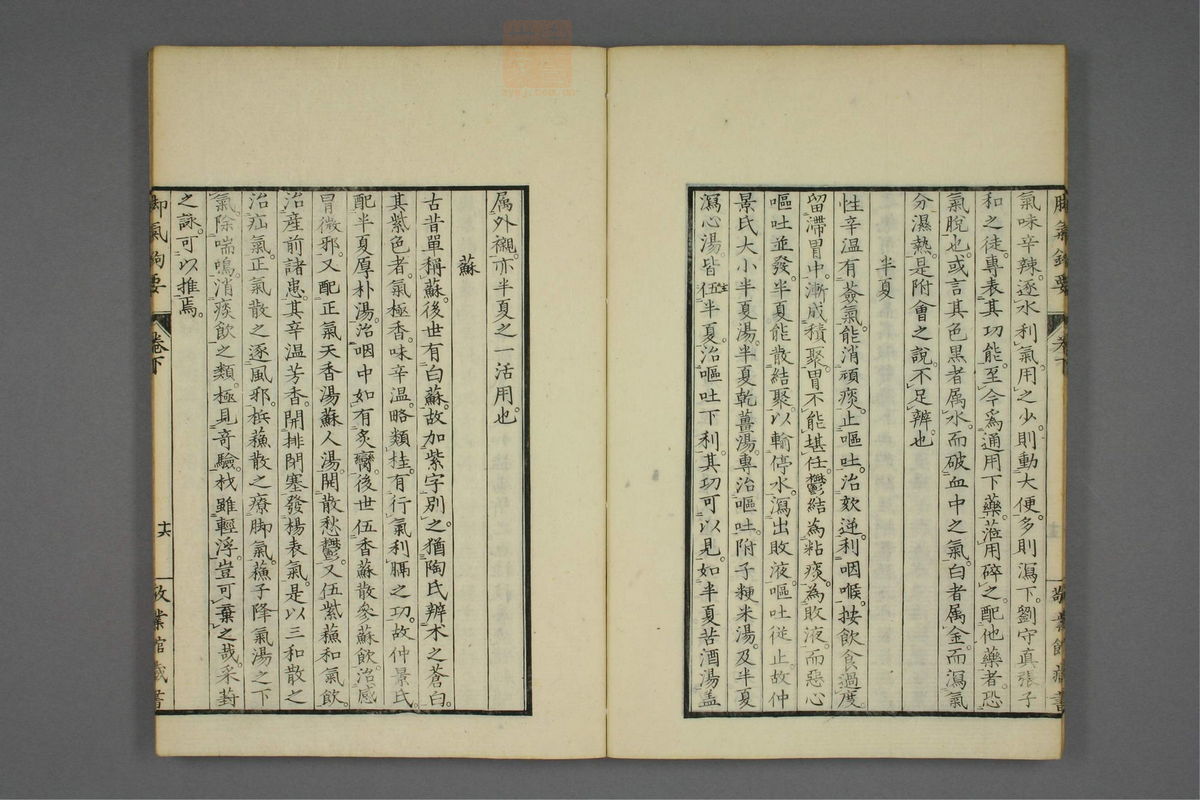 氣味辛辣。逐水利氣。用之少則動大便。多則瀉下。劉守真張子
和之徒。專表其功能。至今爲通用下藥。蒞用碎之。配他藥者。恐
氣脫也。或言其色黑者属水。而破血中之氣。白者属金。而瀉氣
分濕熱。是附會之說。不足辨也。
半夏
性辛温有莶氣。能消頑痰。止嘔吐。治欬逆。利咽喉。按飲食過度。
留滯胃中。漸成積聚。胃不能堪任。鬱結為粘痰。為敗液。而惡心
嘔吐並發。半夏能散結聚。以輸停水。瀉出敗液。嘔吐従止。故仲
景氏大小半夏湯。半夏乾薑湯。專治嘔吐。附子粳米湯。及半夏
瀉心湯。皆伍半夏。治嘔吐下利。其功可以見。如半夏苦酒湯。盖
脚氣 要
卷下
藏書
属外襯。亦半夏之一活用也。
蘇
古昔單稱蘇。後世有白蘇。故加紫字別之。猶陶氏辨朮之蒼白。
其紫色者。氣極香。味辛温。略類桂。有行氣利膈之功。故仲景氏。
配半夏厚朴湯。治咽中如有炙臠。後世伍香蘇散參蘇飲。治感
冒微邪。又配正氣天香湯蘇人湯。開散愁鬱。又伍紫蘓和氣飲。
治産前諸患。其辛温芳香。開排閉塞。發楊表氣。是以三和散之
治疝氣。正氣散之逐風邪。梹蘓散之療脚氣。蘓子降氣湯之下
氣除喘鳴。消痰飲之類。極見奇驗。材雖輕浮。豈可棄之哉。采葑
之詠。可以推焉。
卷下
十六